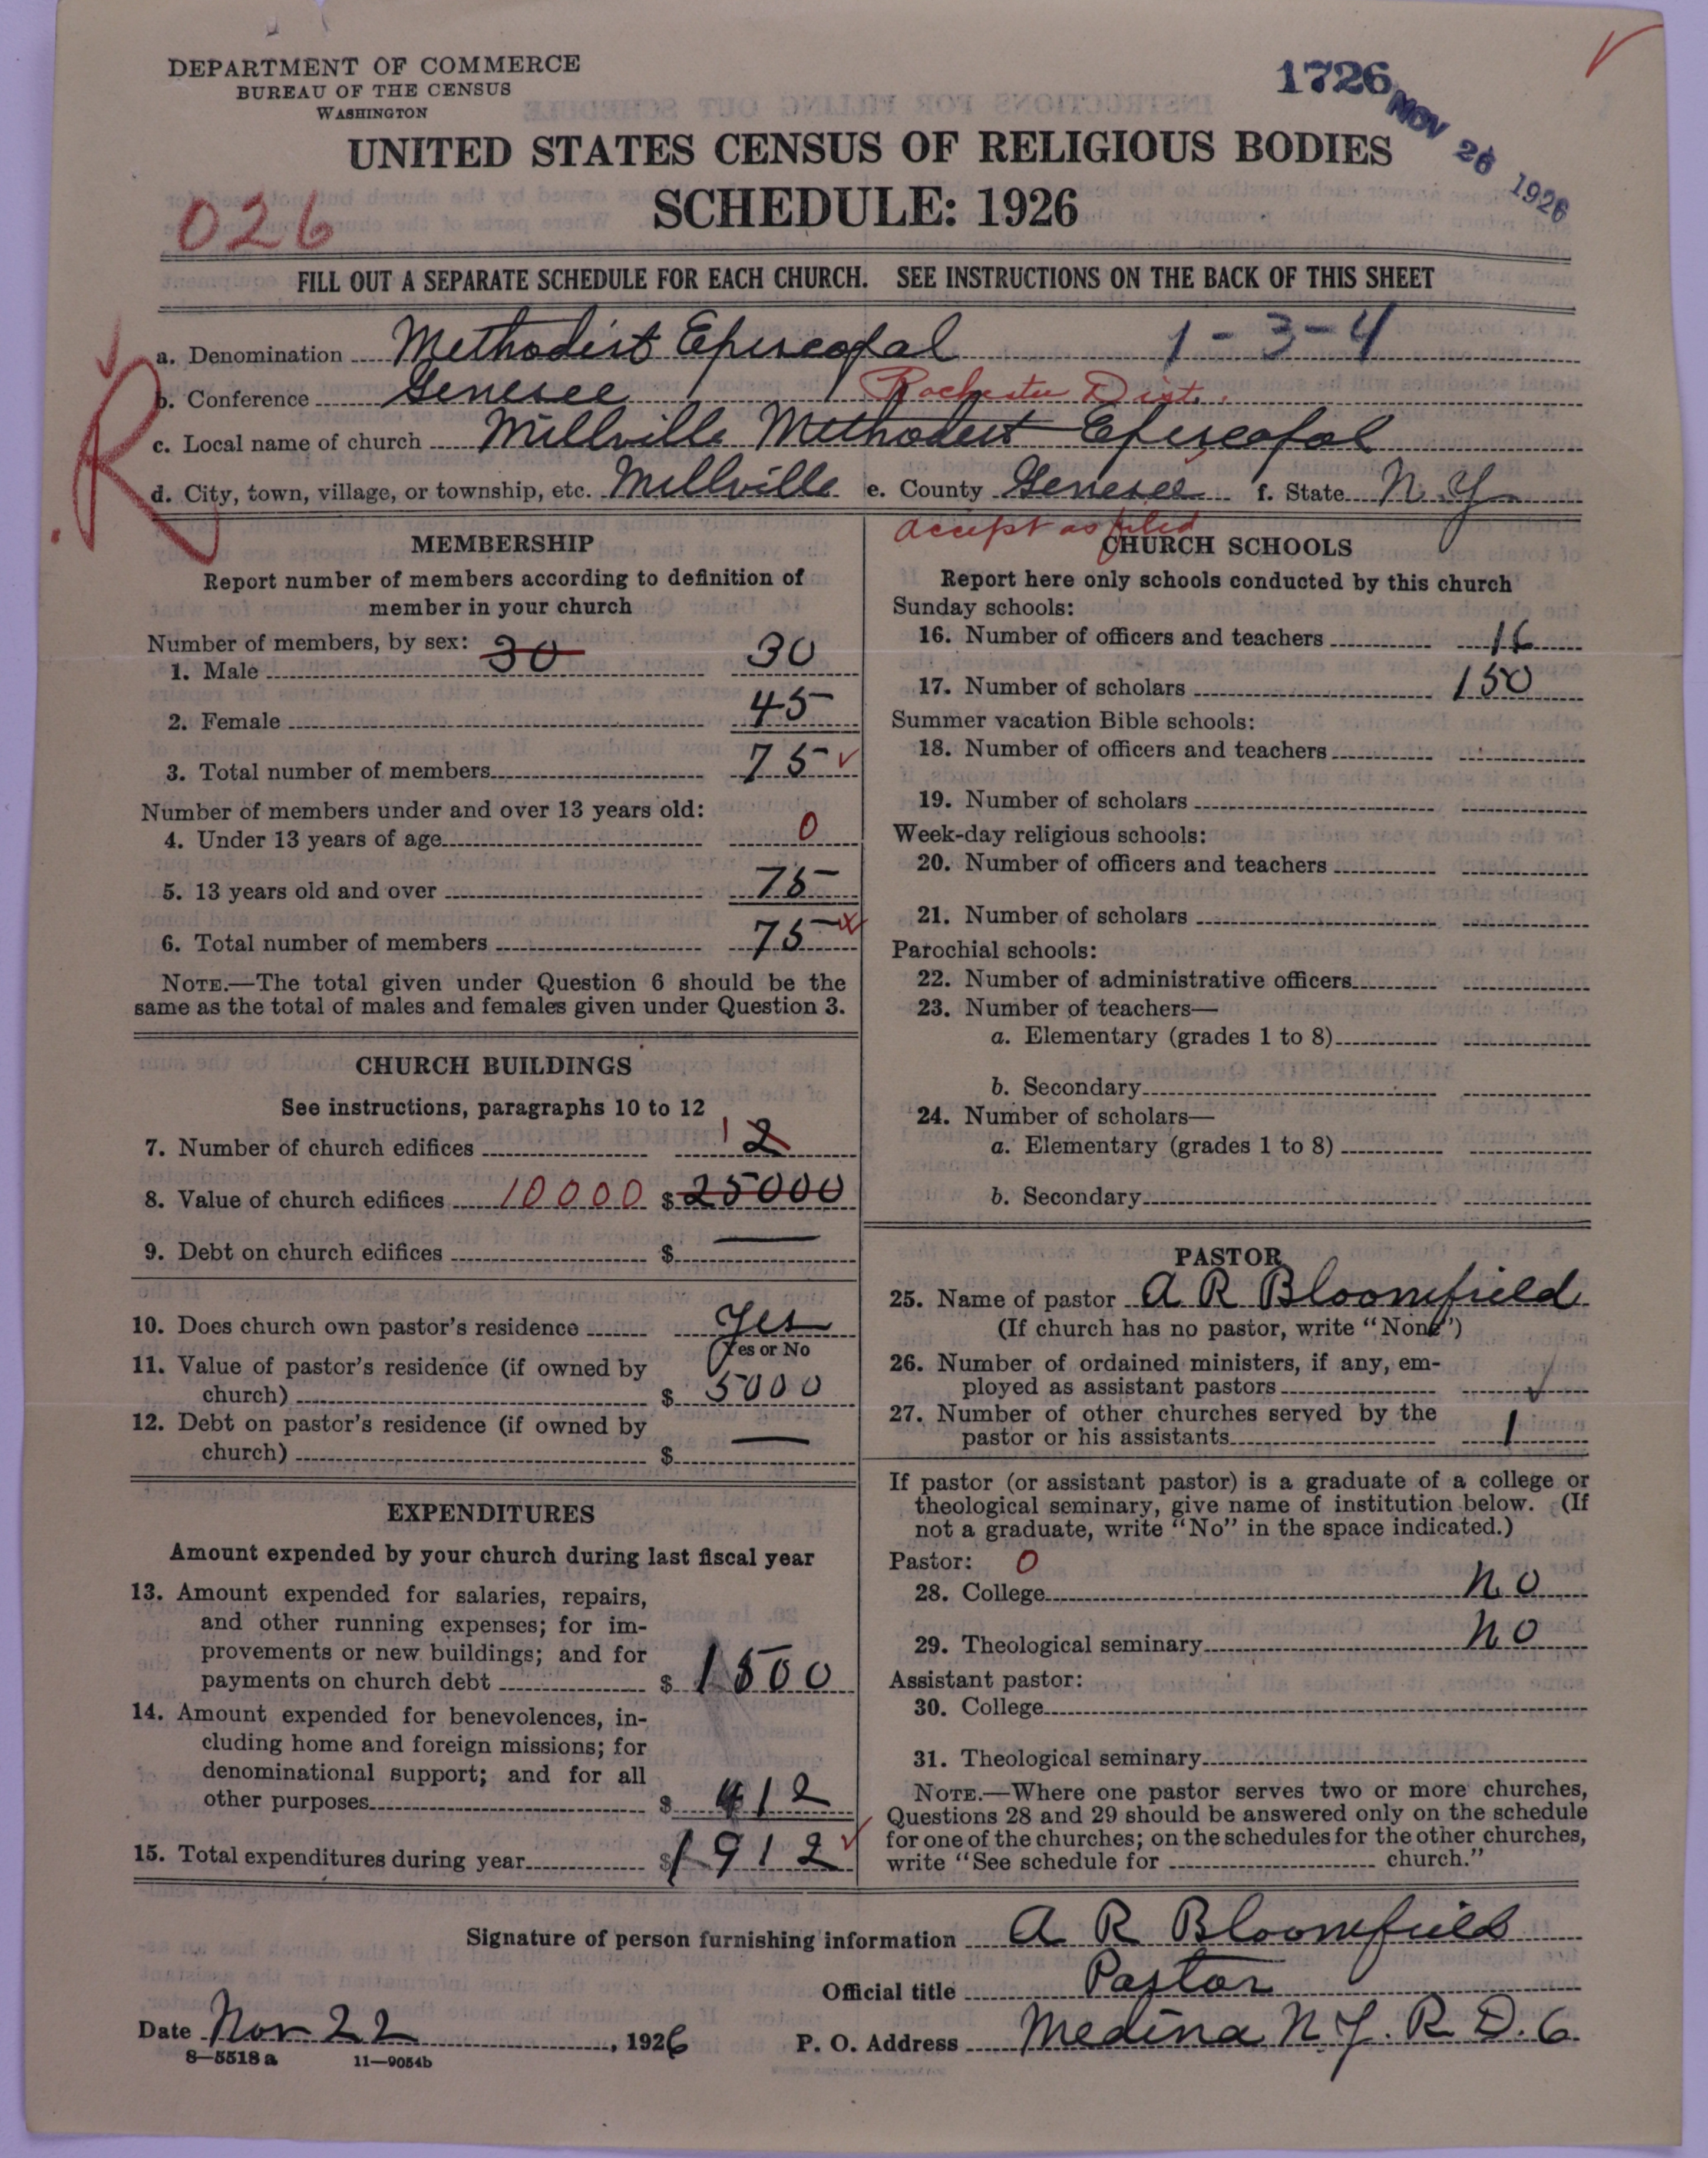 DEPARTMENT OF COMMERCE
BUREAU OF THE CENSUS
WASHINGTON
1726
NOV 26 1926
UNITED STATES CENSUS OF RELIGIOUS BODIES
SCHEDULE: 1926
026
FILL OUT A SEPARATE SCHEDULE FOR EACH CHURCH. SEE INSTRUCTIONS ON THE BACK OF THIS SHEET
R
a. Denomination Methodist Episcopal 1-3-4
b. Conference Genesee Rochester Dist.
c. Local name of church Millville Methodist Episcopal
d. City, town, village, or township, etc. Millville e. County Genesee f. State N.Y.
accept as filed
MEMBERSHIP
Report number of members according to definition of
member in your church
Number of members, by sex: 30
1. Male 30
2. Female 45
3. Total number of members 75
Number of members under and over 13 years old:
4. Under 13 years of age 0
5. 13 years old and over 75
6. Total number of members 75
NOTE.—The total given under Question 6 should be the
same as the total of males and females given under Question 3.
CHURCH BUILDINGS
See instructions, paragraphs 10 to 12
7. Number of church edifices 1 2
8. Value of church edifices 10000 $25000
9. Debt on church edifices $ —
10. Does church own pastor's residence Yes
Yes or No
11. Value of pastor's residence (if owned by
church) $ 5000
12. Debt on pastor's residence (if owned by
church) $ —
EXPENDITURES
Amount expended by your church during last fiscal year
13. Amount expended for salaries, repairs,
and other running expenses; for im-
provements or new buildings; and for
payments on church debt $ 1500
14. Amount expended for benevolences, in-
cluding home and foreign missions; for
denominational support; and for all
other purposes $ 412
15. Total expenditures during year $1912
CHURCH SCHOOLS
Report here only schools conducted by this church
Sunday schools:
16. Number of officers and teachers 16
17. Number of scholars 150
Summer vacation Bible schools:
18. Number of officers and teachers
19. Number of scholars
Week-day religious schools:
20. Number of officers and teachers
21. Number of scholars
Parochial schools:
22. Number of administrative officers
23. Number of teachers—
a. Elementary (grades 1 to 8)
b. Secondary
24. Number of scholars—
a. Elementary (grades 1 to 8)
b. Secondary
PASTOR
25. Name of pastor A R Bloomfield
(If church has no pastor, write "None")
26. Number of ordained ministers, if any, em-
ployed as assistant pastors
27. Number of other churches served by the
pastor or his assistants 1
If pastor (or assistant pastor) is a graduate of a college or
theological seminary, give name of institution below. (If
not a graduate, write "No" in the space indicated.)
Pastor: 0
28. College No
29. Theological seminary No
Assistant pastor:
30. College
31. Theological seminary
NOTE.—Where one pastor serves two or more churches,
Questions 28 and 29 should be answered only on the schedule
for one of the churches; on the schedules for the other churches,
write "See schedule for church."
Signature of person furnishing information A R Bloomfield
Official title Pastor
Date Nov 22, 1926 P. O. Address Medina N.Y. R.D. 6
8—5518 a 11—9054b